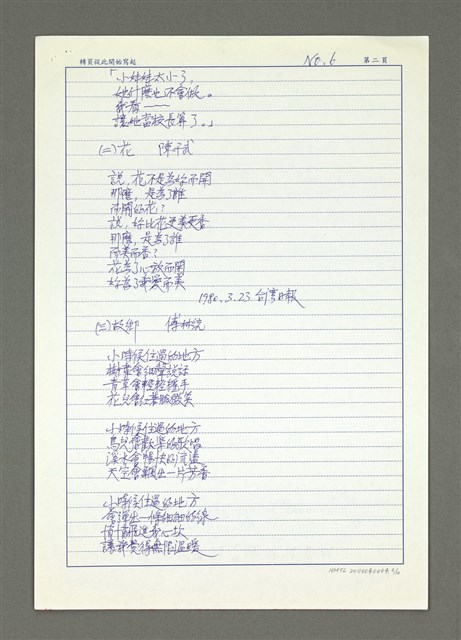 轉頁從此開始寫起
No. 6
第二頁
「小妹妹太小了,
她什麼也不會做。
我看——
讓她當校長算了。」
(二)花 陳千武
說,花不是為妳而開
那麼,是為了誰
而開的花?
說,妳比花更美更香
那麼,是為了誰
而美而香?
花為了心放而開
妳為了我愛而美
1980.3.23.台灣日報
(三)故鄉 傅林統
小時候住過的地方
樹葉會細聲說話
青草會輕輕握手
花兒會紅著臉微笑
小時候住過的地方
鳥兒會歡樂的歌唱
溪水會暢快的流過
天空會飄出一片芳香
小時候住過的地方
會彈出一條細細的線
悄悄繫進我心坎
讓我覺得無限溫暖